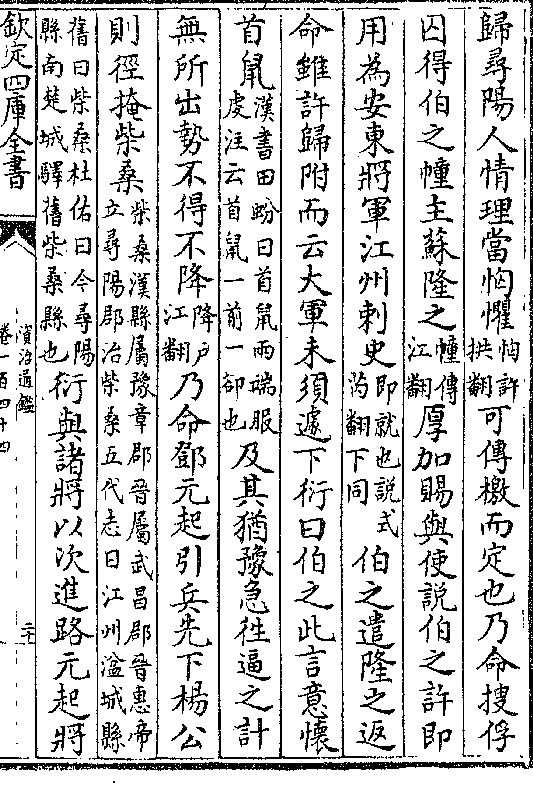 歸尋陽人情理當恟懼恟許拱翻可傳檄而定也乃命搜俘
囚得伯之幢主蘇隆之幢傳江翻厚加賜與使說伯之許即
用為安東將軍江州刺史即就也說式芮翻下同伯之遣隆之返
命雖許歸附而云大軍未須遽下衍曰伯之此言意懷
首鼠漢書田蚡曰首鼠兩瑞服虔注云首鼠一前一卻也及其猶豫急往逼之計
無所出勢不得不降降戶江翻乃命鄧元起引兵先下楊公
則徑掩柴桑柴桑漢縣屬豫章郡晉屬武昌郡晉惠帝立尋陽郡治柴桑五代志曰江州湓城縣
舊曰柴桑杜佑曰今尋陽縣南楚城驛舊柴桑縣也衍與諸將以次進路元起將
欽定四庫全書
資治通鑑
卷一百四十四
二十